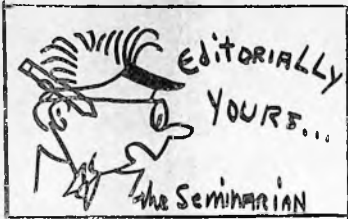 EditORIALLY
YOURS...
the SEMINARIAN